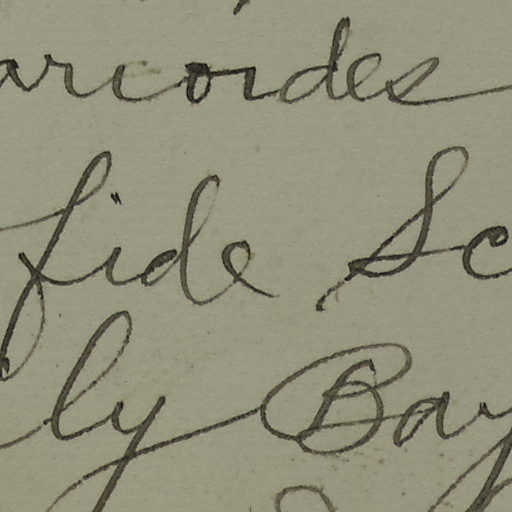 arcoides
fide Sc
ly Bay